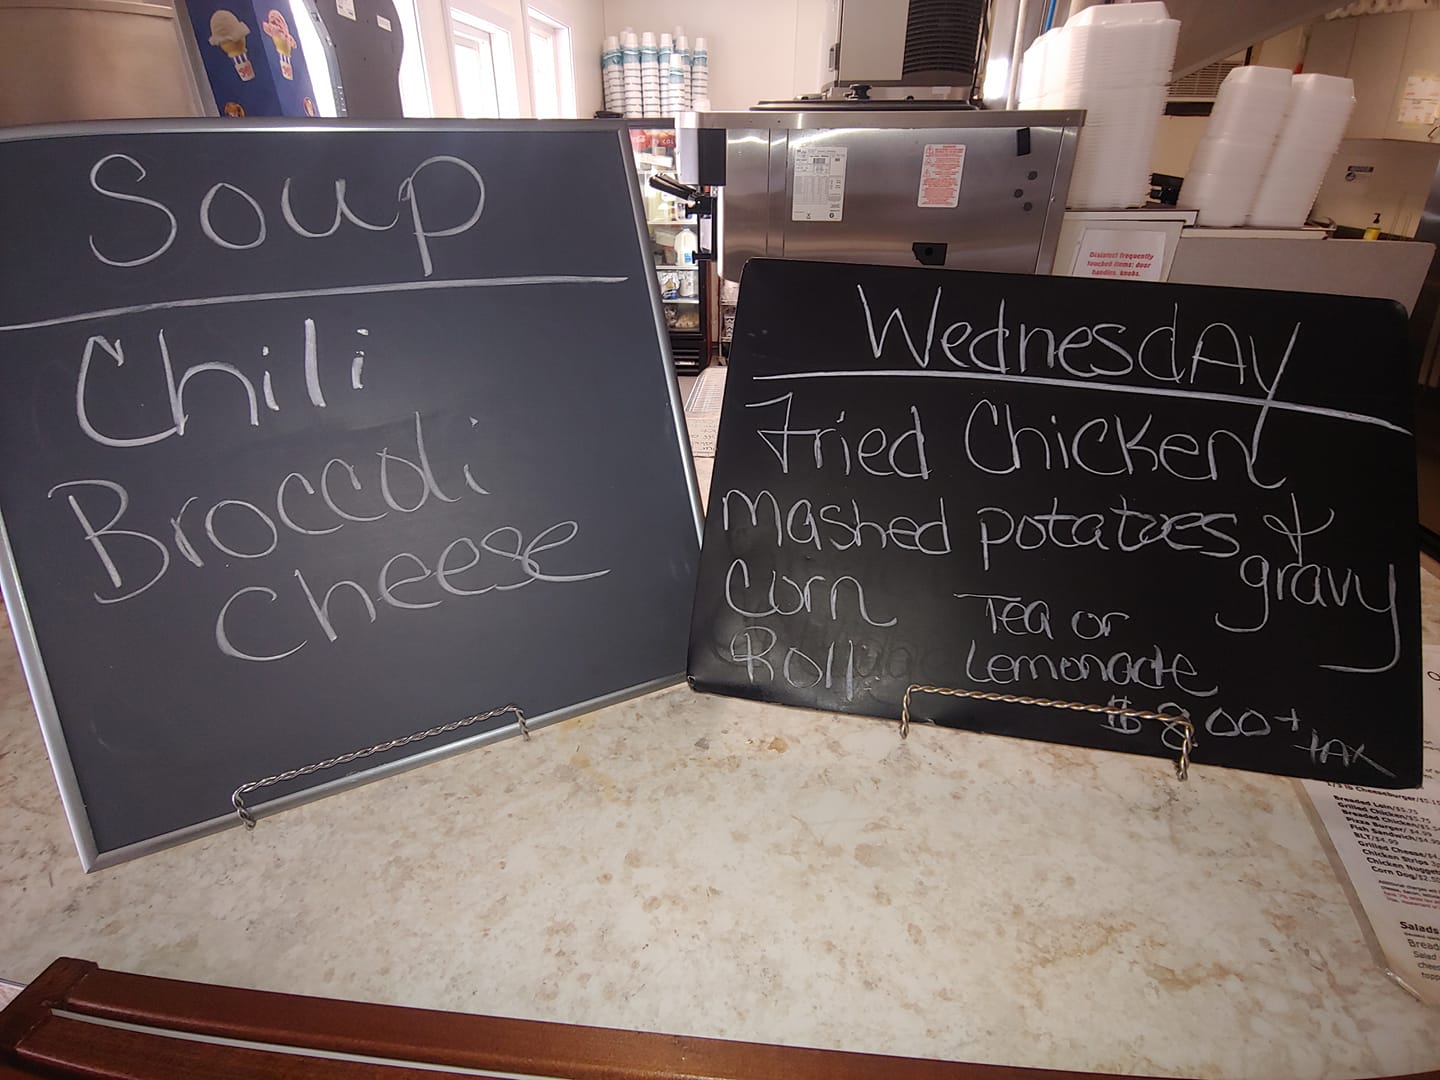 Soup
Chili
Broccoli
Cheese
Wednesday
Fried Chicken
Mashed potatoes &
gravy
Corn
Roll
Tea or
Lemonade
$8.00+
tax
Disinfect frequently
touched items: door
handles, knobs.
1/3 lb Cheeseburger/$5.
Breaded Loin/$5.75
Grilled Chicken/$5.75
Breaded Chicken/$5.
Pizza Burger/ $4.99
Fish Sandwich/$4.99
BLT/$4.99
Grilled Cheese/$4.
Chicken Strips
Chicken Nugget
Corn Dog/$2.50
Salads
Bread
Salad
chees
topp